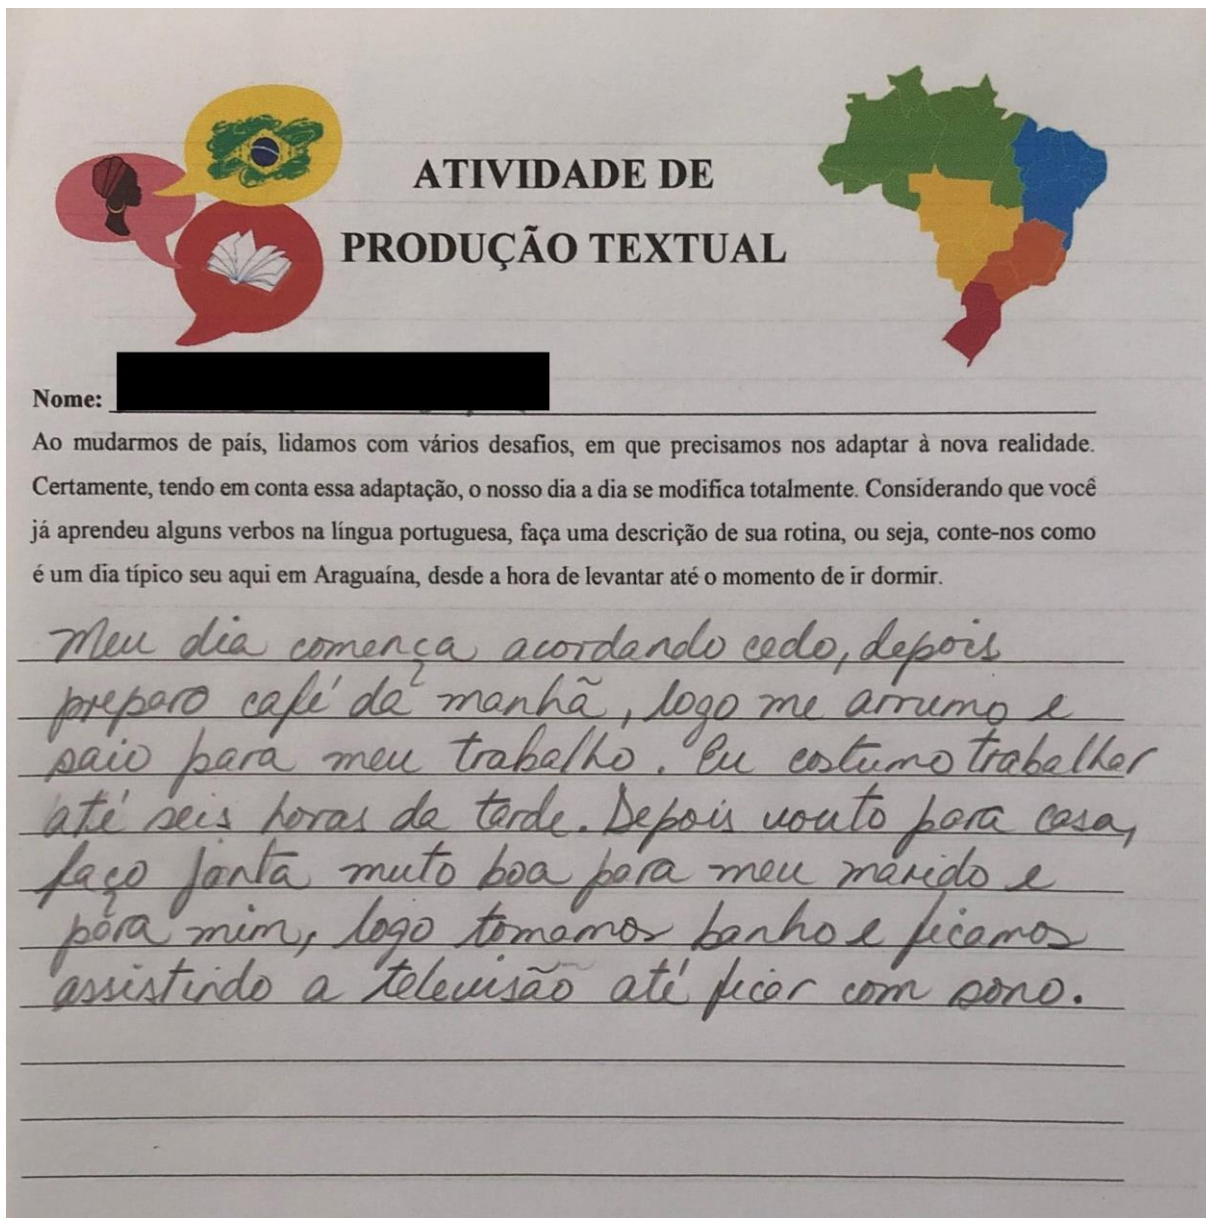 ATIVIDADE DE
PRODUÇÃO TEXTUAL
Nome:
Ao mudarmos de país, lidamos com vários desafios, em que precisamos nos adaptar à nova realidade.
Certamente, tendo em conta essa adaptação, o nosso dia a dia se modifica totalmente. Considerando que você
já aprendeu alguns verbos na língua portuguesa, faça uma descrição de sua rotina, ou seja, conte-nos como
é um dia típico seu aqui em Araguaína, desde a hora de levantar até o momento de ir dormir.
Meu dia comença acordando cedo, depois
preparo café da manhã, logo me arrumo e
saio para meu trabalho. Eu costumo trabalhar
até seis horas da tarde. Depois vouto para casa,
faço janta muto boa para meu marido e
para mim, logo tomamos banho e ficamos
assistindo a televisão até ficar com sono.